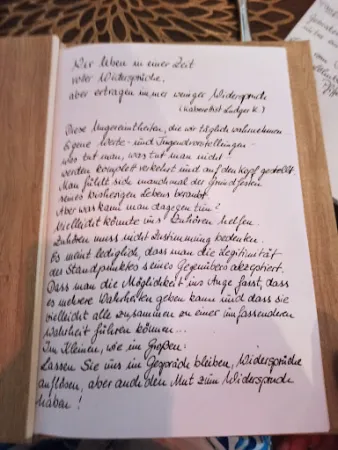 Wir leben in einer Zeit
voller Widersprüche,
aber ertragen immer weniger Widerspruch
(Kabarettist Ludger K.)
Diese Ungereimtheiten, die wir täglich wahrnehmen
Eigene Werte- und Tugendvorstellungen -
was tut man, was tut man nicht
werden komplett verkehrt und auf den Kopf gestellt.
Man fühlt sich manchmal der Grundfesten
seines bisherigen Lebens beraubt.
Aber was kann man dagegen tun?
Vielleicht könnte uns Zuhören helfen.
Zuhören muss nicht Zustimmung bedeuten.
Es meint lediglich, dass man die Legitimität
des Standpunktes seines Gegenübers akzeptiert.
Dass man die Möglichkeit ins Auge fasst, dass
es mehrere Wahrheiten geben kann und dass sie
vielleicht alle zusammen zu einer umfassenderen
Wahrheit führen können...
Im Kleinen, wie im Großen:
Lassen Sie uns im Gespräch bleiben, Widersprüche
auflösen, aber auch den Mut zum Widerspruch
haben!